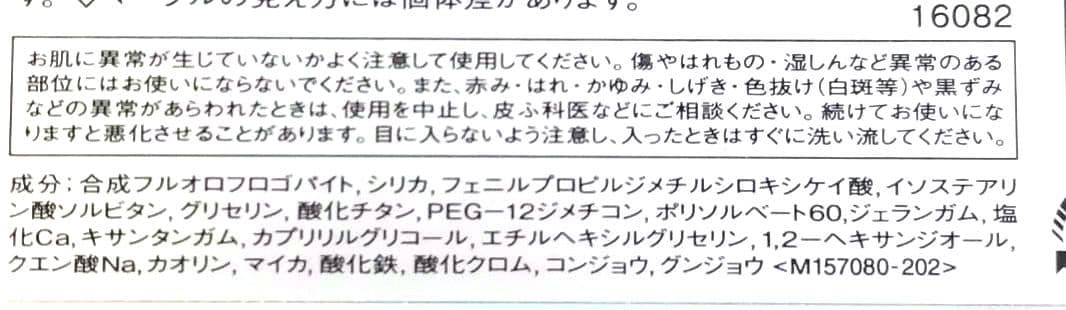 16082
お肌に異常が生じていないかよく注意して使用してください。傷やはれもの・湿しんなど異常のある
部位にはお使いにならないでください。また、赤み・はれ・かゆみ・しげき・色抜け(白斑等)や黒ずみ
などの異常があらわれたときは、使用を中止し、皮ふ科医などにご相談ください。続けてお使いにな
りますと悪化させることがあります。目に入らないよう注意し、入ったときはすぐに洗い流してください。
成分：合成フルオロフロゴパイト, シリカ, フェニルプロピルジメチルシロキシケイ酸, イソステアリ
ン酸ソルビタン, グリセリン, 酸化チタン, PEG－12ジメチコン, ポリソルベート60, ジェランガム, 塩
化Ca, キサンタンガム, カプリリルグリコール, エチルヘキシルグリセリン, 1,2－ヘキサンジオール,
クエン酸Na, カオリン, マイカ, 酸化鉄, 酸化クロム, コンジョウ, グンジョウ <M157080-202>